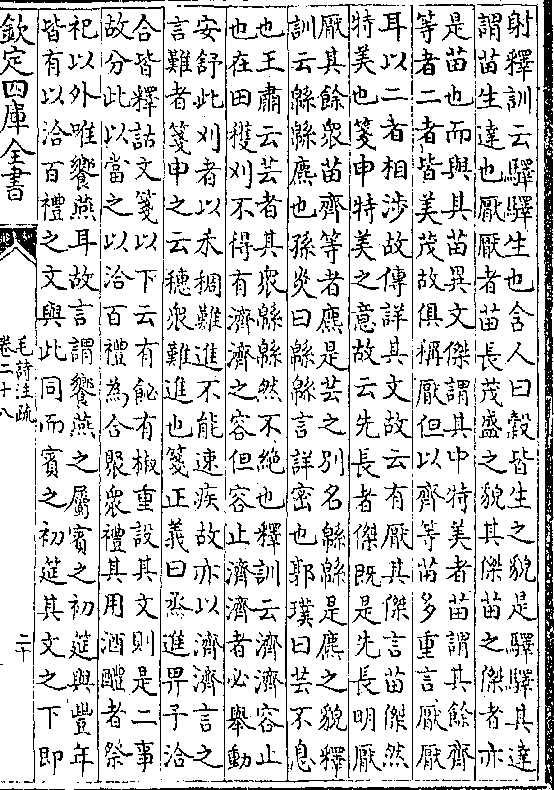 射釋訓云驛驛生也舍人曰穀皆生之貌是驛驛其達
謂苗生達也厭厭者苗長茂盛之貌其傑苗之傑者亦
是苗也而與其苗異文傑謂其中特美者苗謂其餘齊
等者二者皆美茂故俱稱厭但以齊等苗多重言厭厭
耳以二者相涉故傳詳其文故云有厭其傑言苗傑然
特美也箋申特美之意故云先長者傑既是先長明厭
厭其餘衆苗齊等者麃是芸之别名緜緜是麃之貌釋
訓云緜緜麃也孫炎曰緜緜言詳密也郭璞曰芸不息
也王肅云芸者其衆緜緜然不絶也釋訓云濟濟容止
也在田穫刈不得有濟濟之容但容止濟濟者必舉動
安舒此刈者以禾稠難進不能速疾故亦以濟濟言之
言難者箋申之云穗衆難進也箋正義曰烝進畀予洽
合皆釋詁文箋以下云有飶有椒重設其文則是二事
故分此以當之以洽百禮為合聚衆禮其用酒醴者祭
祀以外唯饗燕耳故言謂饗燕之屬賔之初筵與豐年
皆有以洽百禮之文與此同而賔之初筵其文之下即
欽定四庫全書
毛詩注疏
卷二十八
二十